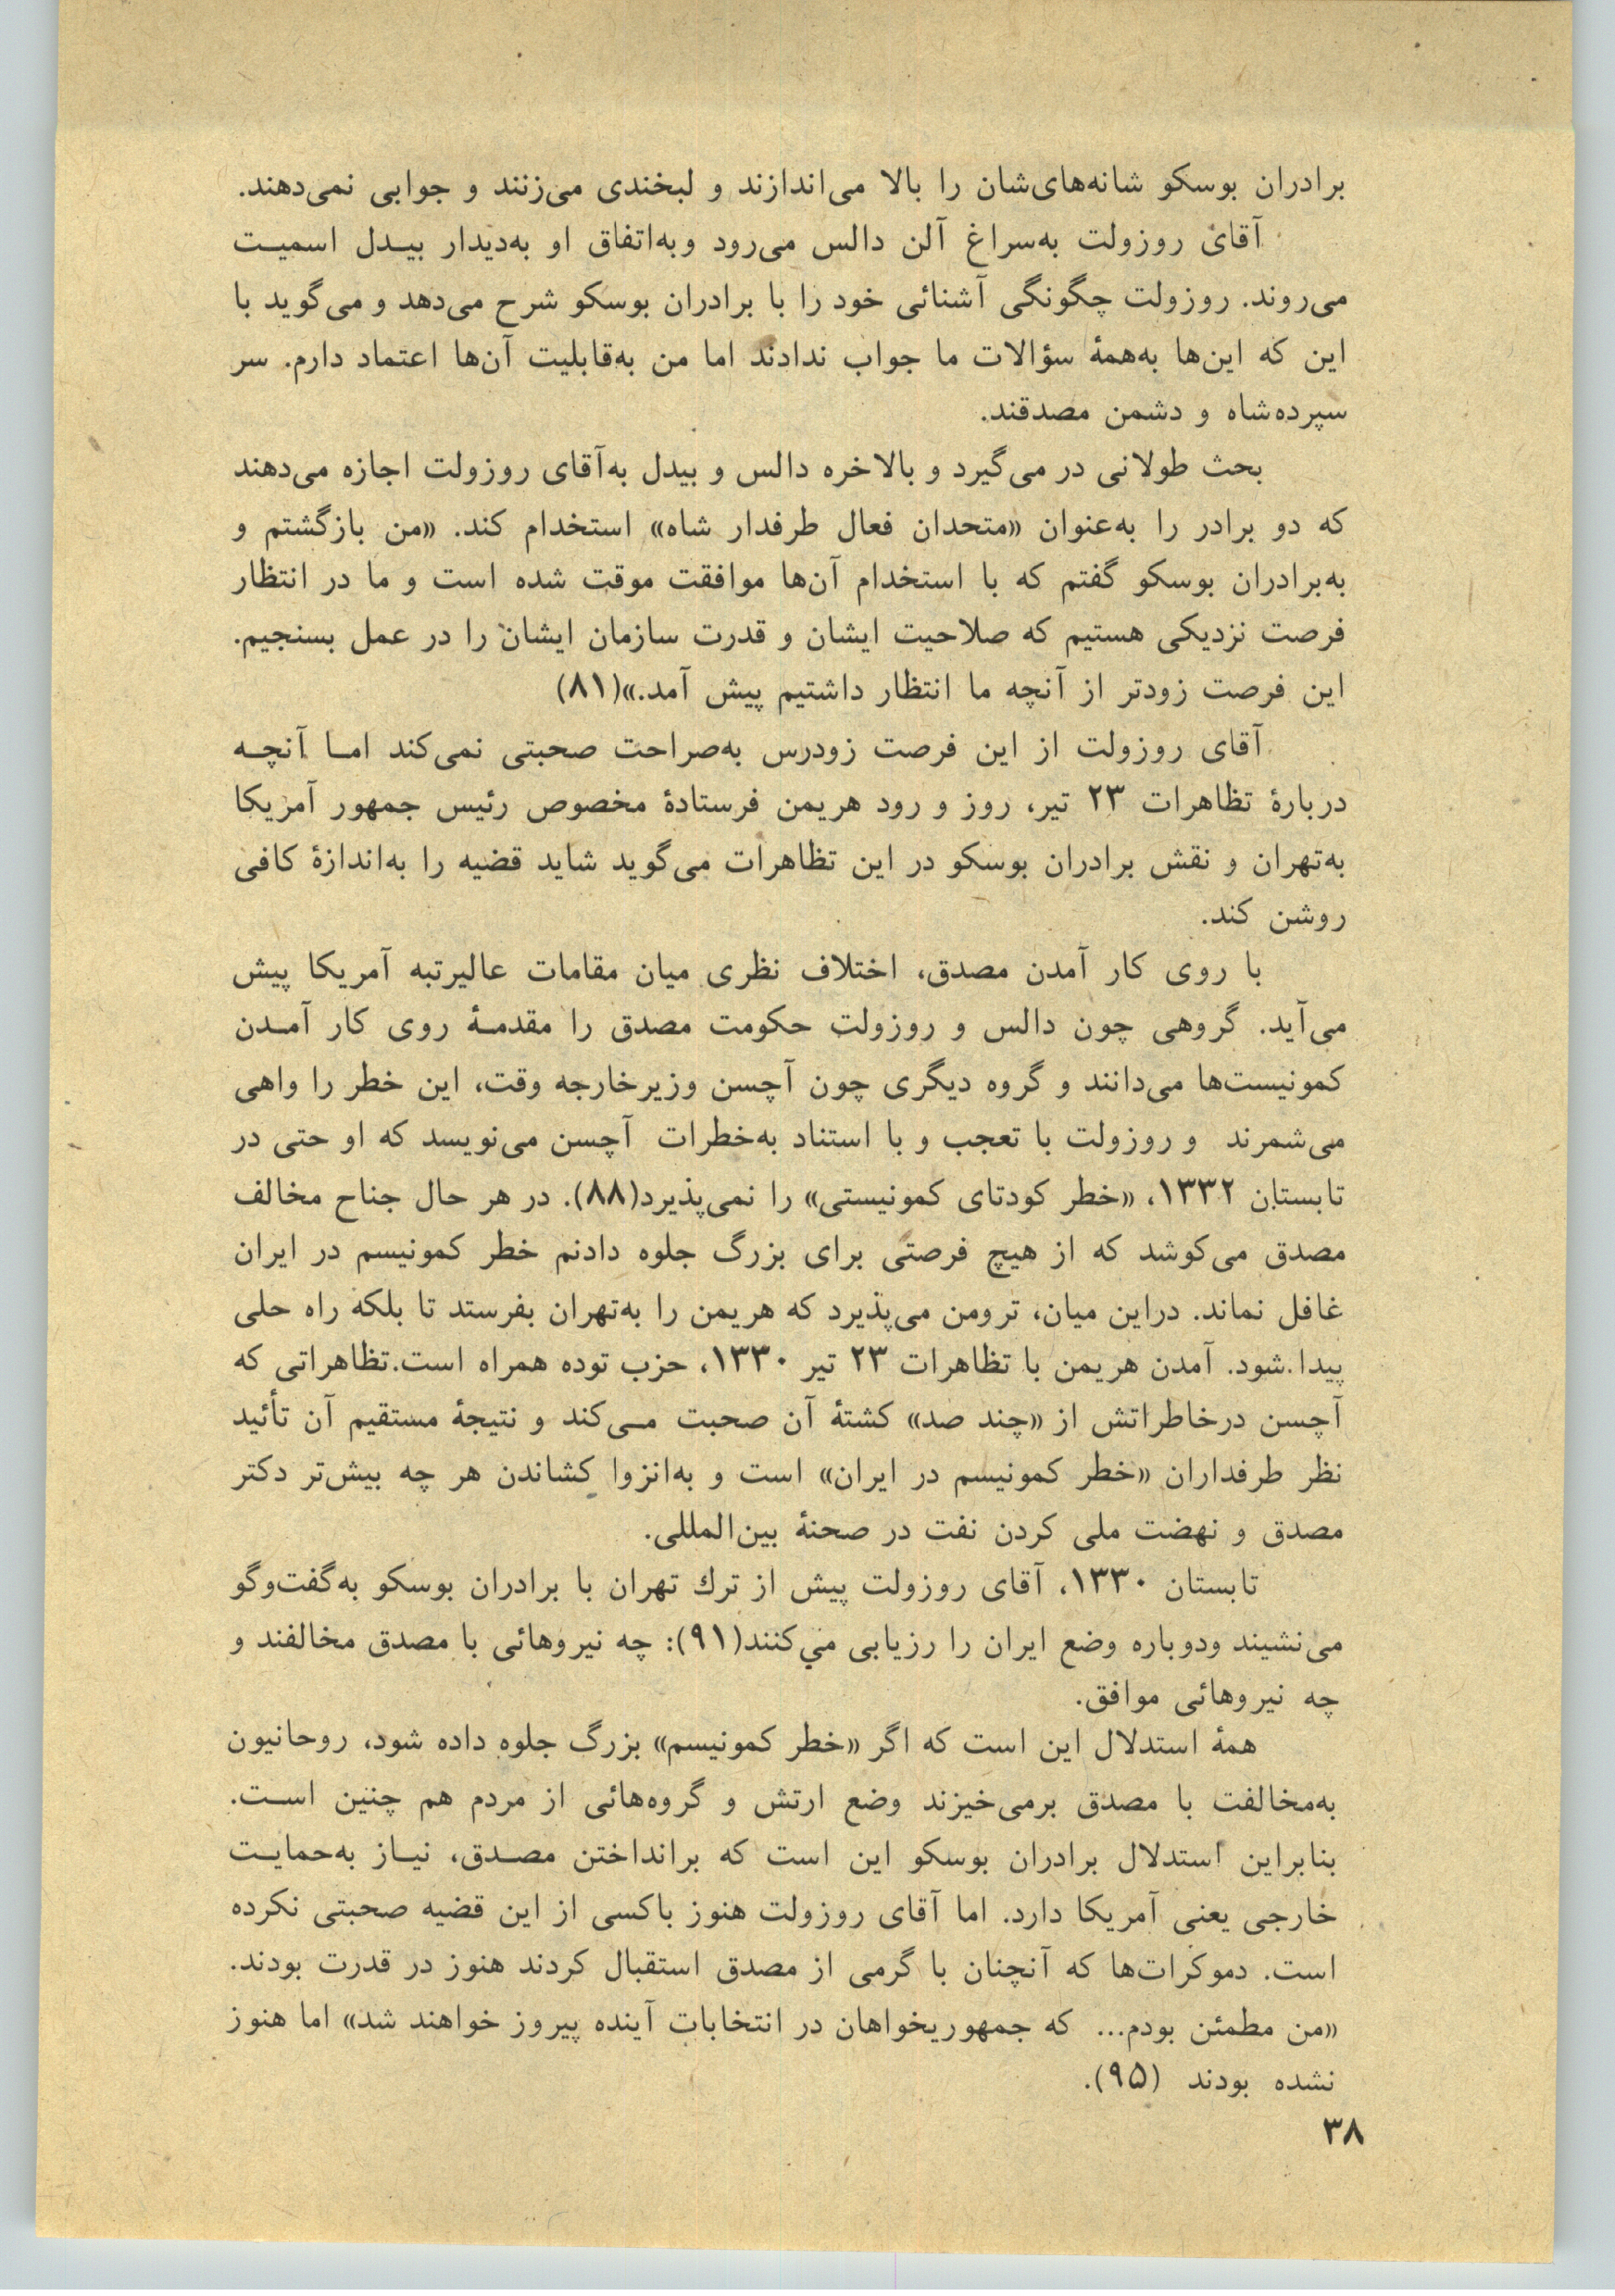 برادران بوسکو شانه‌های‌شان را بالا می‌اندازند و لبخندی می‌زنند و جوابی نمی‌دهند.
آقای روزولت به‌سراغ آلن دالس می‌رود وبه‌اتفاق او به‌دیدار بیـدل اسمیـت
می‌روند. روزولت چگونگی آشنائی خود را با برادران بوسکو شرح می‌دهد و می‌گوید با
این که این‌ها به‌همهٔ سؤالات ما جواب ندادند اما من به‌قابلیت آن‌ها اعتماد دارم. سر
سپرده‌شاه و دشمن مصدقند.
بحث طولانی در می‌گیرد و بالاخره دالس و بیدل به‌آقای روزولت اجازه می‌دهند
که دو برادر را به‌عنوان «متحدان فعال طرفدار شاه» استخدام کند. «من بازگشتم و
به‌برادران بوسکو گفتم که با استخدام آن‌ها موافقت موقت شده است و ما در انتظار
فرصت نزدیکی هستیم که صلاحیت ایشان و قدرت سازمان ایشان را در عمل بسنجیم.
این فرصت زودتر از آنچه ما انتظار داشتیم پیش آمد.»(۸۱)
آقای روزولت از این فرصت زودرس به‌صراحت صحبتی نمی‌کند امـا آنچـه
دربارهٔ تظاهرات ۲۳ تیر، روز و رود هریمن فرستادهٔ مخصوص رئیس جمهور آمریکا
به‌تهران و نقش برادران بوسکو در این تظاهرات می‌گوید شاید قضیه را به‌اندازهٔ کافی
روشن کند.
با روی کار آمدن مصدق، اختلاف نظری میان مقامات عالیرتبه آمریکا پیش
می‌آید. گروهی چون دالس و روزولت حکومت مصدق را مقدمـهٔ روی کار آمـدن
کمونیست‌ها می‌دانند و گروه دیگری چون آچسن وزیرخارجه وقت، این خطر را واهی
می‌شمرند و روزولت با تعجب و با استناد به‌خطرات آچسن می‌نویسد که او حتی در
تابستان ۱۳۳۲، «خطر کودتای کمونیستی» را نمی‌پذیرد(۸۸). در هر حال جناح مخالف
مصدق می‌کوشد که از هیچ فرصتی برای بزرگ جلوه دادنم خطر کمونیسم در ایران
غافل نماند. دراین میان، ترومن می‌پذیرد که هریمن را به‌تهران بفرستد تا بلکه راه حلی
پیدا.شود. آمدن هریمن با تظاهرات ۲۳ تیر ۱۳۳۰، حزب توده همراه است.تظاهراتی که
آچسن درخاطراتش از «چند صد» کشتهٔ آن صحبت مـی‌کند و نتیجهٔ مستقیم آن تأئید
نظر طرفداران «خطر کمونیسم در ایران» است و به‌انزوا کشاندن هر چه بیش‌تر دکتر
مصدق و نهضت ملی کردن نفت در صحنهٔ بین‌المللی.
تابستان ۱۳۳۰، آقای روزولت پیش از ترك تهران با برادران بوسکو به‌گفت‌وگو
می‌نشیند ودوباره وضع ایران را رزیابی مي‌کنند(۹۱): چه نیروهائی با مصدق مخالفند و
چه نیروهائی موافق.
همهٔ استدلال این است که اگر «خطر کمونیسم» بزرگ جلوه داده شود، روحانیون
به‌مخالفت با مصدق برمی‌خیزند وضع ارتش و گروه‌هائی از مردم هم چنین اسـت.
بنابراین استدلال برادران بوسکو این است که برانداختن مصـدق، نیـاز به‌حمایـت
خارجی یعنی آمریکا دارد. اما آقای روزولت هنوز باکسی از این قضیه صحبتی نکرده
است. دموکرات‌ها که آنچنان با گرمی از مصدق استقبال کردند هنوز در قدرت بودند.
«من مطمئن بودم... که جمهوریخواهان در انتخابات آینده پیروز خواهند شد» اما هنوز
نشده بودند (۹۵).
۳۸